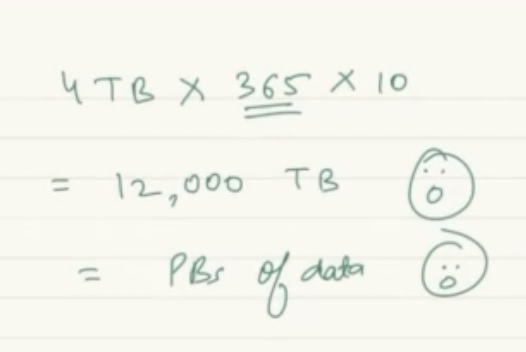 4 TB × 365 × 10
= 12,000 TB
= PBs of data